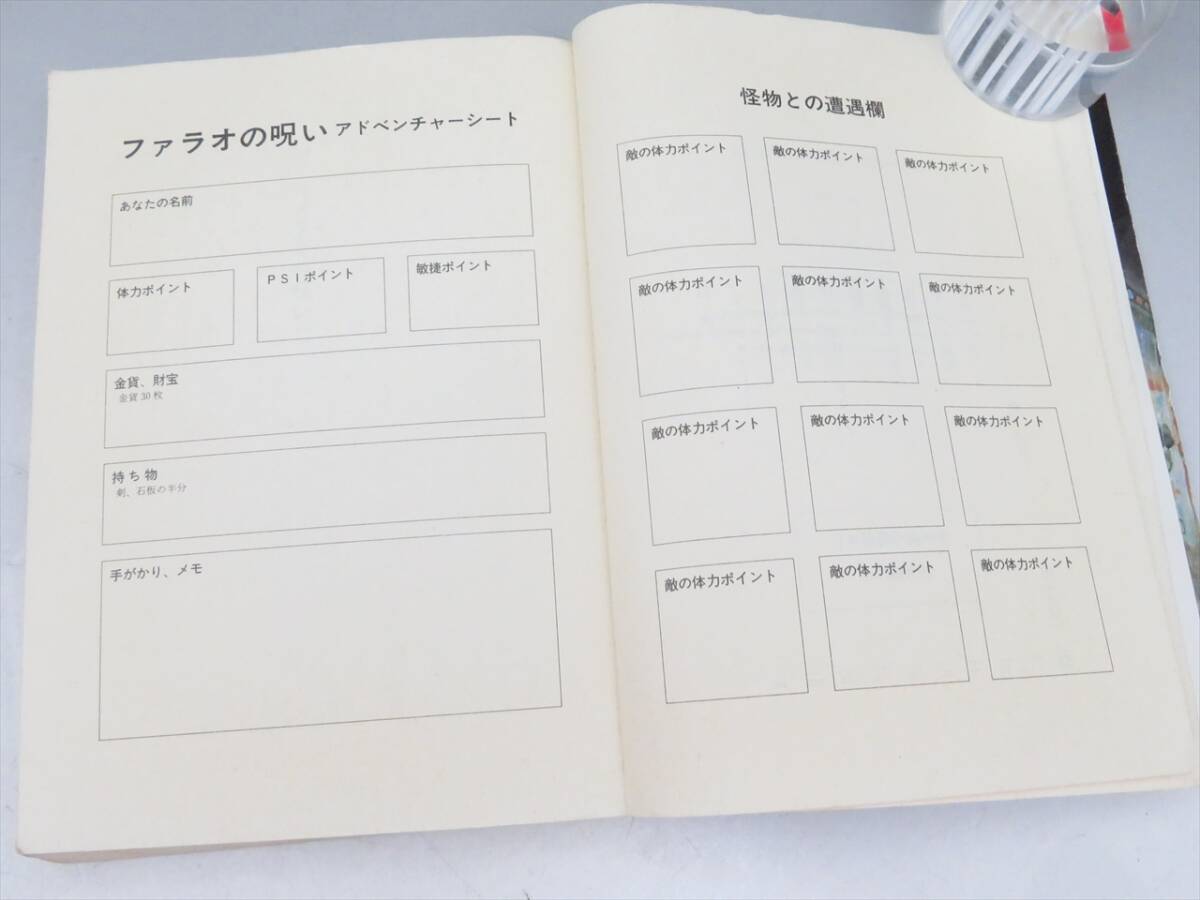 ファラオの呪い アドベンチャーシート
あなたの名前
体力ポイント
PSIポイント
敏捷ポイント
金貨、財宝
金貨30枚
持ち物
剣、石板の半分
手がかり、メモ
怪物との遭遇欄
敵の体力ポイント
敵の体力ポイント
敵の体力ポイント
敵の体力ポイント
敵の体力ポイント
敵の体力ポイント
敵の体力ポイント
敵の体力ポイント
敵の体力ポイント
敵の体力ポイント
敵の体力ポイント
敵の体力ポイント